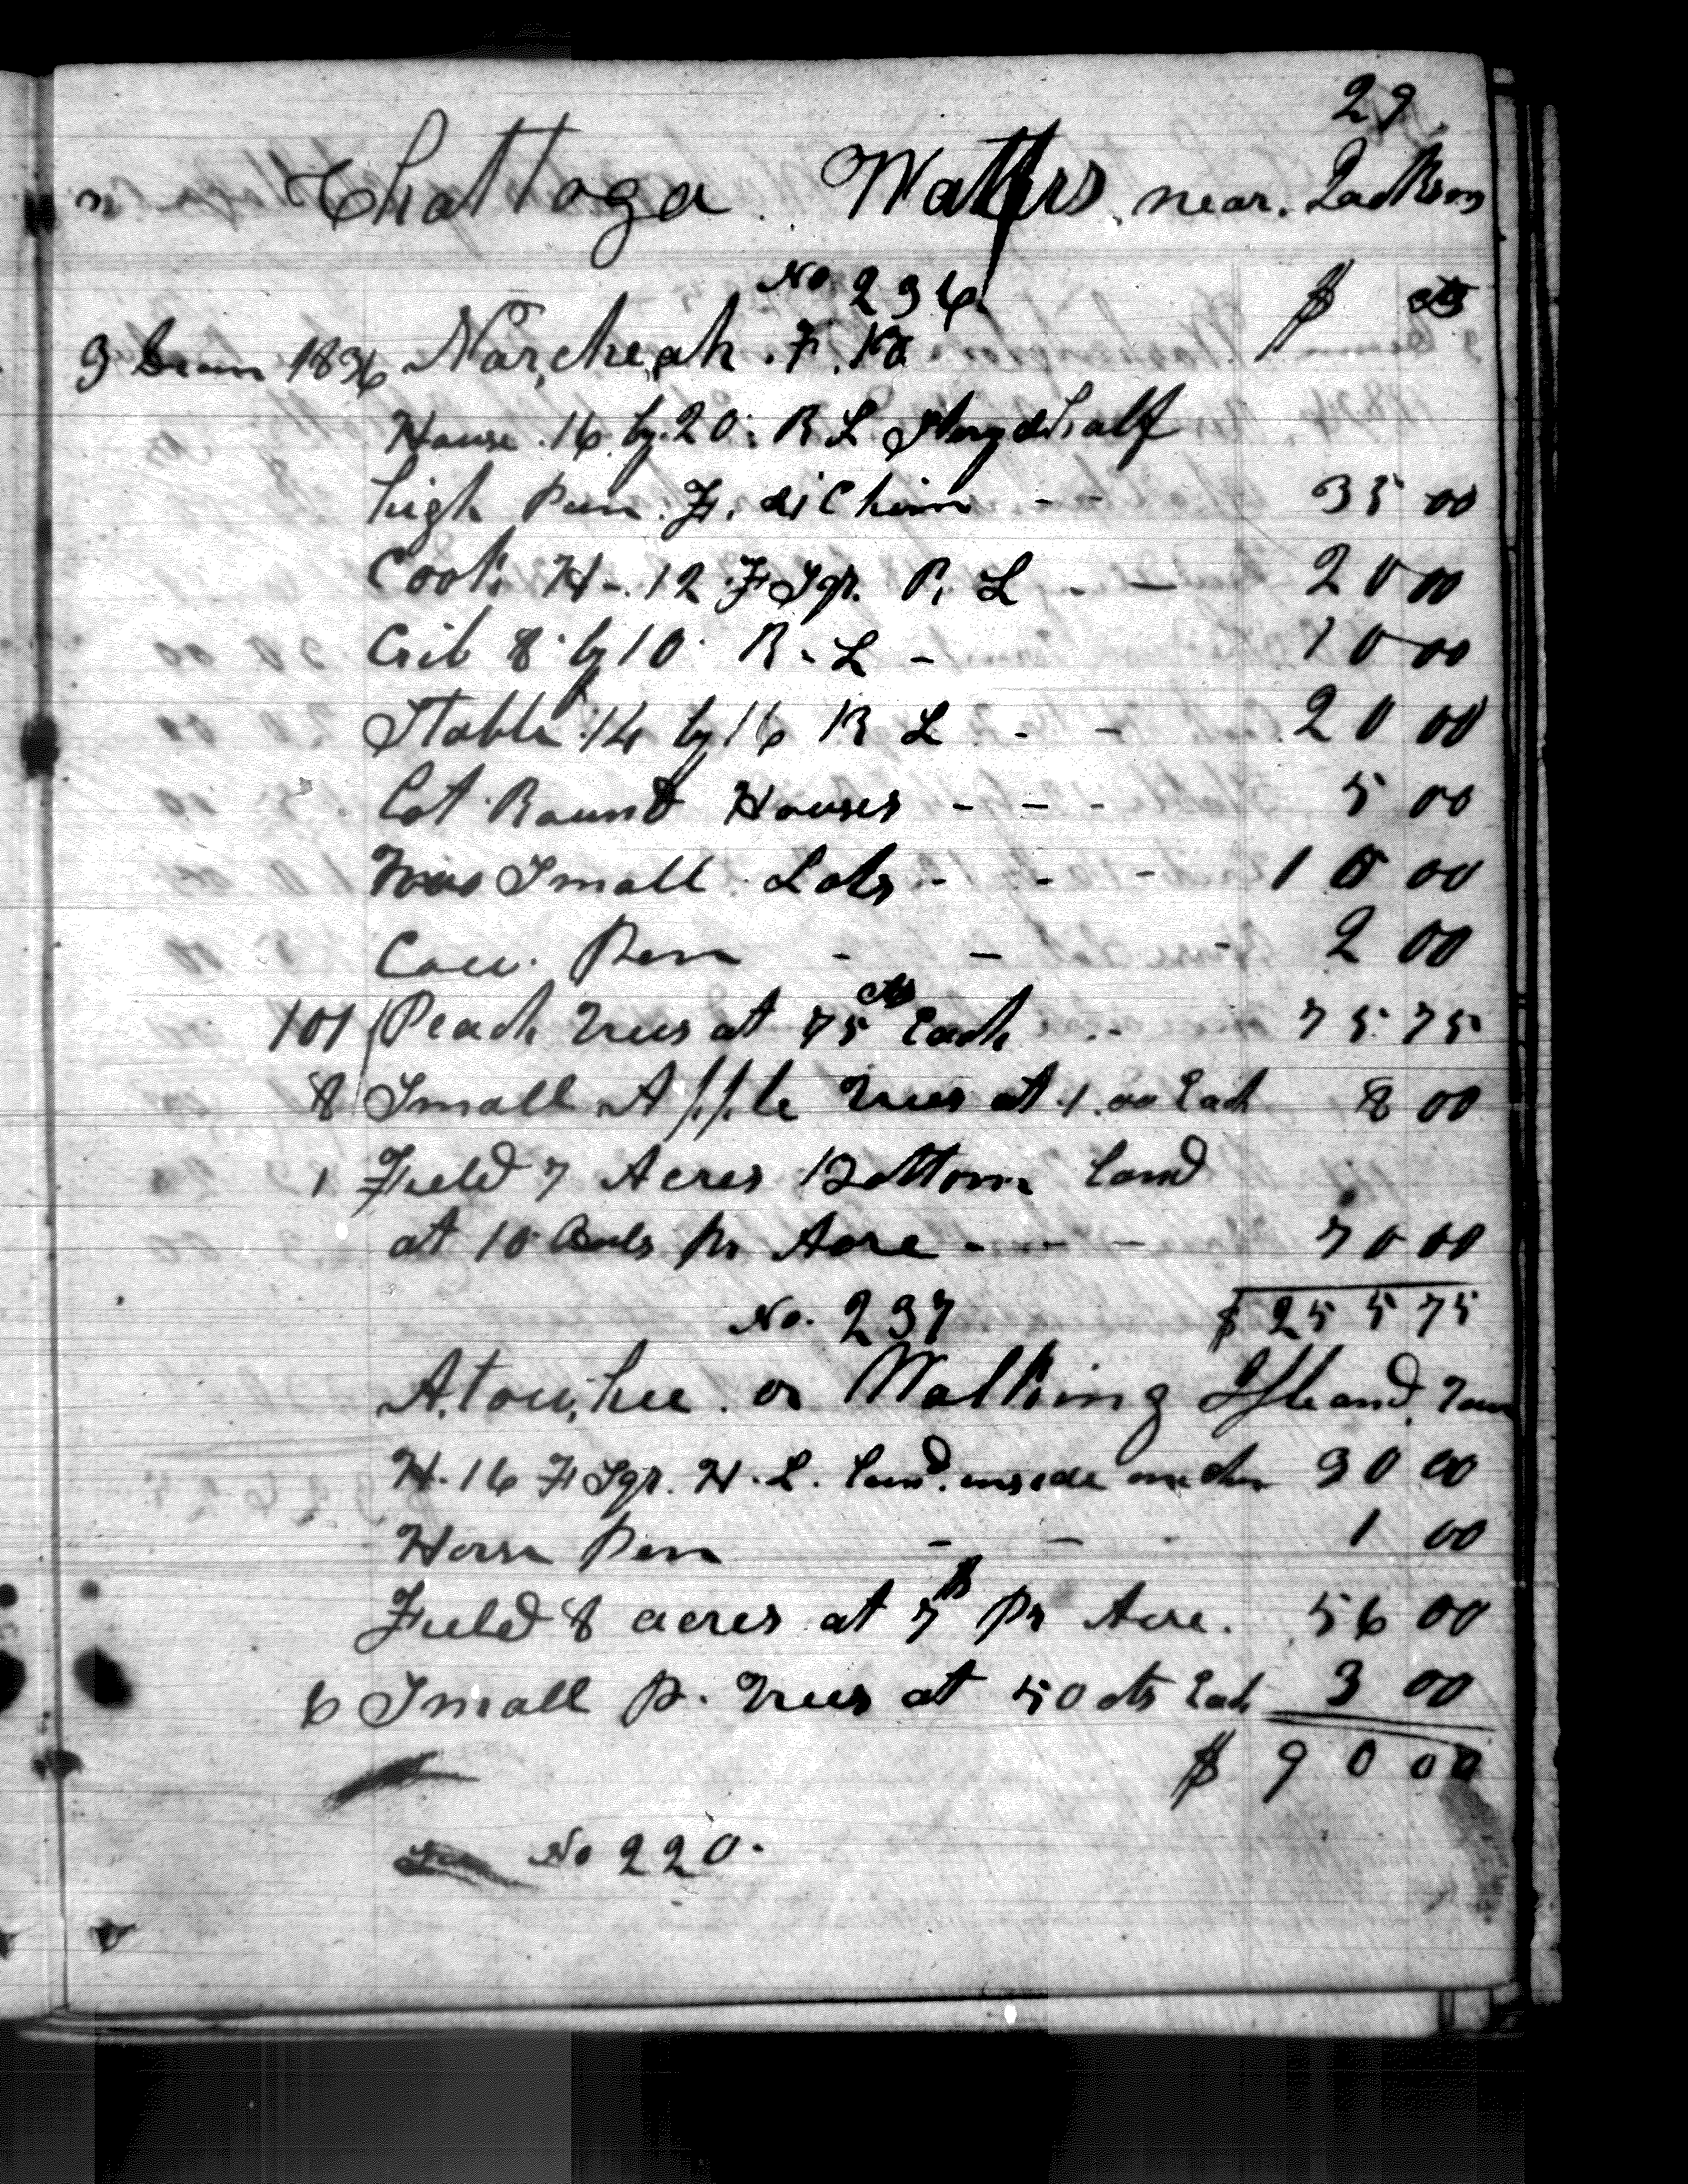 29
Chattoga Watters near Jackson
No 236 $ cts
9 Decem 1836 Nar,che,ah. F. B
House 16 by 20. R L Story & half
high Pun. F. & Chim - - 35 00
Cook H - 12 F Sqr. R. L - - 20 00
Crib 8 by 10 R. L - 10 00
Stable 14 by 16 R L - - 20 00
Lot Round Houses - - - 5 00
Two Small Lots - - - 10 00
Cow Pen - - - 2 00
101 Peach Trees at 75 cts Each - - 75 75
8 Small Apple Trees at 1.00 Each 8 00
1 Field 7 Acres Bottom land
at 10 pr Acre - - - 70 00
No. 237 $ 255 75
A,tow,hee or Walking Town
H. 16 F Sqr. H. L. inside 30 00
Horse Pen - - 1 00
Field 8 acres at 7 $ pr Acre. 56 00
6 Small p. Trees at 50 cts Each 3 00
$ 90 00
No 220.